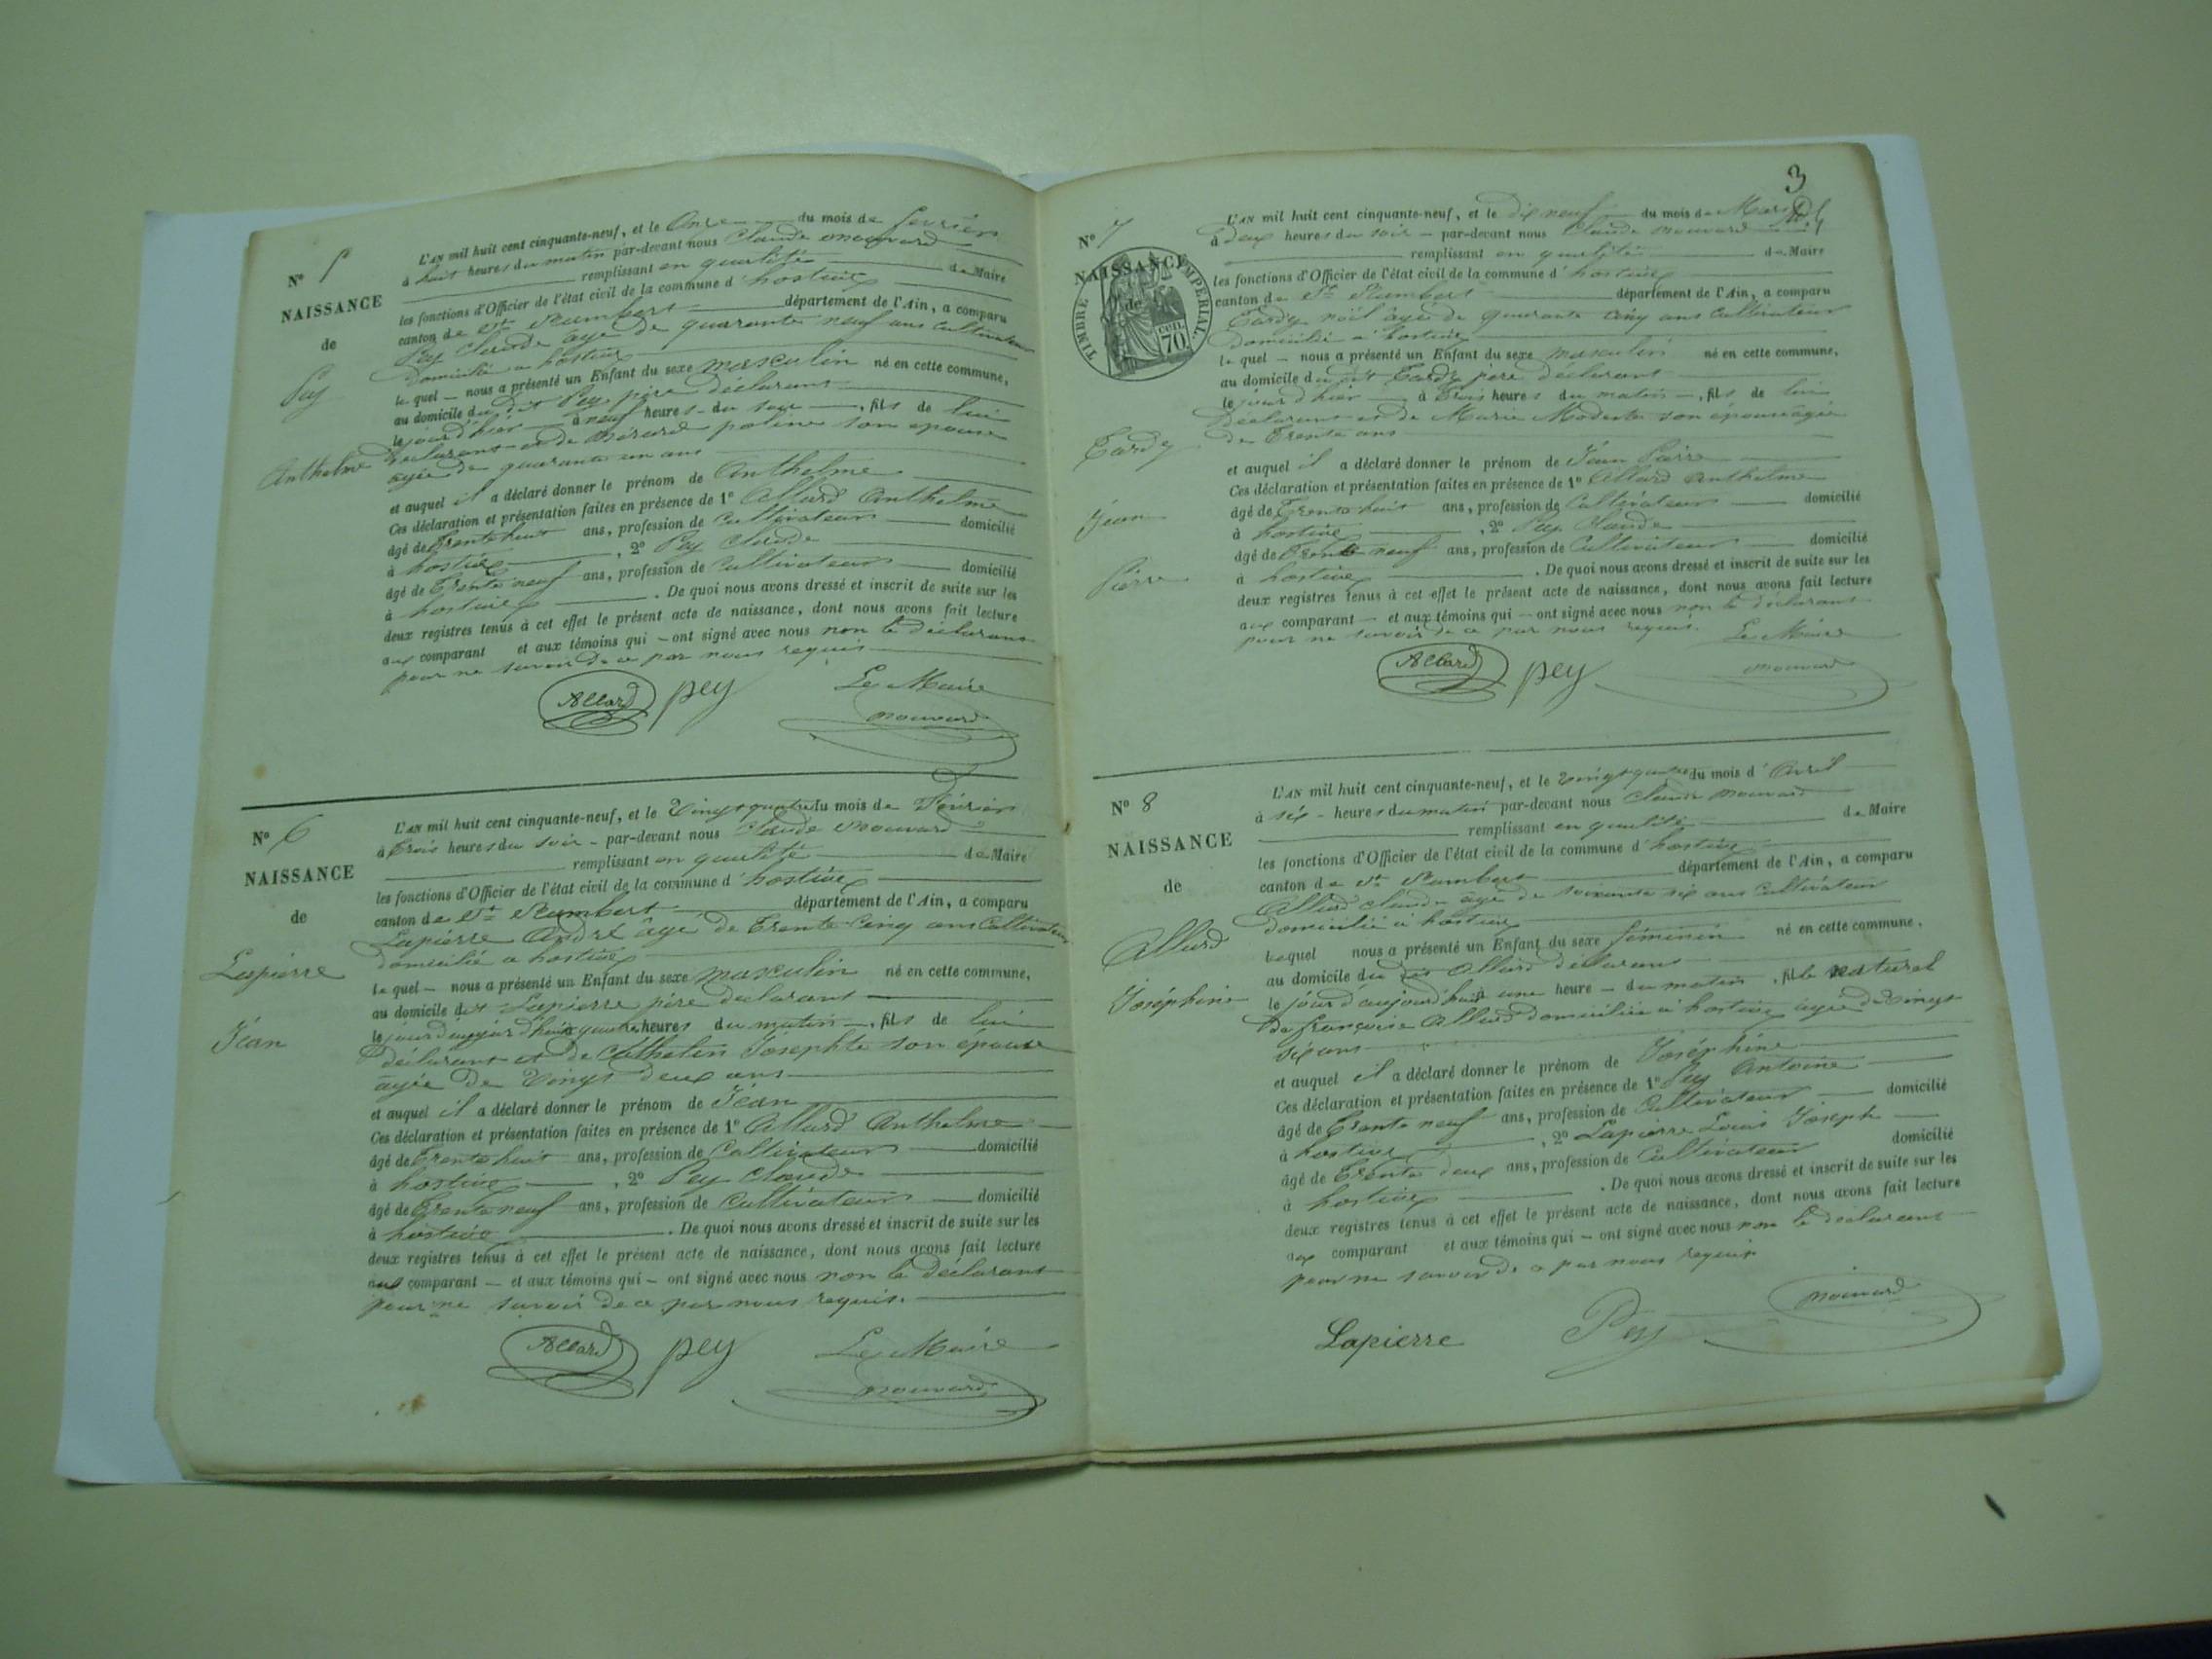 N° 5
NAISSANCE
de
Pey
Anthelme
L'AN mil huit cent cinquante-neuf, et le Onze du mois de fevrier
à huit heures du matin par-devant nous Claude mouvard
remplissant en qualité de Maire
les fonctions d'Officier de l'état civil de la commune d'hostiaz
canton de St Rambert département de l'Ain, a comparu
Pey Claude âgé de quarante neuf ans cultivateur
domicilié a hostiaz
lequel nous a présenté un Enfant du sexe masculin né en cette commune,
au domicile du dit Pey père déclarant
le jour d'hier à neuf heures du soir, fils de lui
déclarant et de poline son épouse
agée de quarante un ans
et auquel il a déclaré donner le prénom de Anthelme
Ces déclaration et présentation faites en présence de 1° Allard Anthelme
âgé de Trente huit ans, profession de Cultivateur domicilié
à hostiaz, 2° Pey Claude
âgé de Trente neuf ans, profession de Cultivateur domicilié
à hostiaz. De quoi nous avons dressé et inscrit de suite sur les
deux registres tenus à cet effet le présent acte de naissance, dont nous avons fait lecture
aux comparant et aux témoins qui ont signé avec nous non le déclarant
pour ne savoir de ce par nous requis
Allard pey Le Maire
mouvard
N° 6
NAISSANCE
de
Lapierre
Jéan
L'AN mil huit cent cinquante-neuf, et le Vingt quatre du mois de Février
à Trois heures du soir par-devant nous Claude mouvard
remplissant en qualité de Maire
les fonctions d'Officier de l'état civil de la commune d'hostiaz
canton de St Rambert département de l'Ain, a comparu
Lapierre André âgé de Trente Cinq ans Cultivateur
domicilié a hostiaz
lequel nous a présenté un Enfant du sexe masculin né en cette commune,
au domicile du Lapierre père declarant
le jour d'aujourd'hui à quatre heures du matin, fils de lui
déclarant et de Cathelin Josephte son épouse
agée de Vingt deux ans
et auquel il a déclaré donner le prénom de Jéan
Ces déclaration et présentation faites en présence de 1° Allard Anthelme
âgé de Trente huit ans, profession de Cultivateur domicilié
à hostiaz, 2° Pey Claude
âgé de Trente neuf ans, profession de Cultivateur domicilié
à hostiaz. De quoi nous avons dressé et inscrit de suite sur les
deux registres tenus à cet effet le présent acte de naissance, dont nous avons fait lecture
aux comparant et aux témoins qui ont signé avec nous non le déclarant
pour ne savoir de ce par nous requis.
Allard pey Le Maire
mouvard
3
N° 7
NAISSANCE
de
TIMBRE IMPERIAL
CEN.
70
Tardy
Jéan
Pierre
L'AN mil huit cent cinquante-neuf, et le dix neuf du mois de Mars
à deux heures du soir par-devant nous Claude mouvard
remplissant en qualité de Maire
les fonctions d'Officier de l'état civil de la commune d'hostiaz
canton de St Rambert département de l'Ain, a comparu
Tardy noël âgé de quarante cinq ans Cultivateur
domicilié a hostiaz
lequel nous a présenté un Enfant du sexe masculin né en cette commune,
au domicile du dit Tardy père déclarant
le jour d'hier à Trois heures du matin, fils de lui
déclarant et de Marie Modeste son épouse agée
de Trente ans
et auquel il a déclaré donner le prénom de Jéan Pierre
Ces déclaration et présentation faites en présence de 1° Allard Anthelme
âgé de Trente huit ans, profession de Cultivateur domicilié
à hostiaz, 2° Pey Claude
âgé de Trente neuf ans, profession de Cultivateur domicilié
à hostiaz. De quoi nous avons dressé et inscrit de suite sur les
deux registres tenus à cet effet le présent acte de naissance, dont nous avons fait lecture
aux comparant et aux témoins qui ont signé avec nous non le déclarant
pour ne savoir de ce par nous requis. Le Maire
Allard pey mouvard
N° 8
NAISSANCE
de
Allard
Joséphine
L'AN mil huit cent cinquante-neuf, et le vingt quatre du mois d'Avril
à six heures du matin par-devant nous Claude mouvard
remplissant en qualité de Maire
les fonctions d'Officier de l'état civil de la commune d'hostiaz
canton de St Rambert département de l'Ain, a comparu
Allard Claude agé de soixante six ans cultivateur
domicilié à hostiaz
lequel nous a présenté un Enfant du sexe féminin né en cette commune,
au domicile du dit Allard déclarant
le jour d'aujourd'hui à une heure du matin, fille naturel
de françoise Allard domiciliée à hostiaz agée de vingt
six ans
et auquel il a déclaré donner le prénom de Joséphine
Ces déclaration et présentation faites en présence de 1° Pey Antoine
âgé de Trente neuf ans, profession de Cultivateur domicilié
à hostiaz, 2° Lapierre Louis Joseph
âgé de Trente deux ans, profession de Cultivateur domicilié
à hostiaz. De quoi nous avons dressé et inscrit de suite sur les
deux registres tenus à cet effet le présent acte de naissance, dont nous avons fait lecture
aux comparant et aux témoins qui ont signé avec nous non le déclarant
pour ne savoir de ce par nous requis
Lapierre Pey mouvard